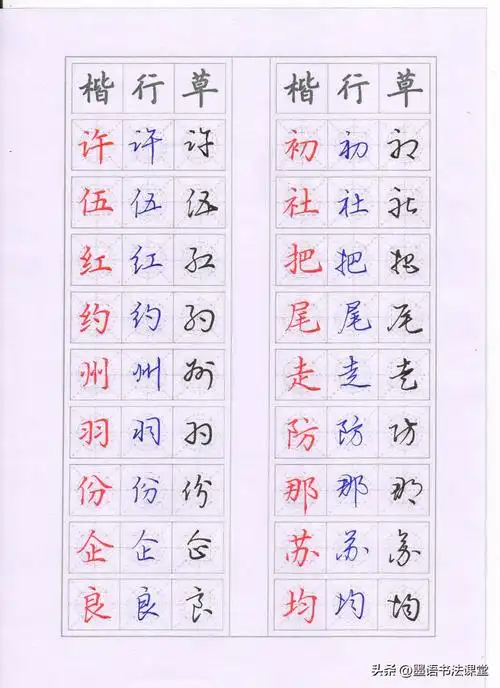 楷 行 草 楷 行 草
许 许 许 初 初 初
伍 伍 伍 社 社 社
红 红 红 把 把 把
约 约 约 尾 尾 尾
州 州 州 走 走 走
羽 羽 羽 防 防 防
份 份 份 那 那 那
企 企 企 苏 苏 苏
良 良 良 均 均 均
头条 @墨语书法课堂